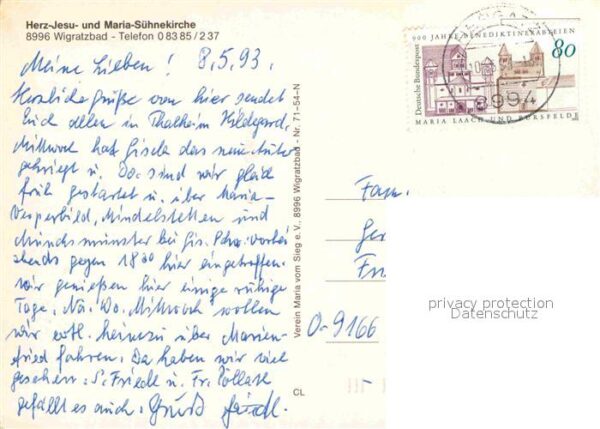 Herz-Jesu- und Maria-Sühnekirche
8996 Wigratzbad - Telefon 0 83 85 / 2 37
Meine Lieben! 8.5.93.
Herzliche Grüße von hier sendet
Euch allen in Thalheim Hildegard.
Mittwoch hat Gisela das neue Auto
gekriegt u. Do. sind wir gleich
früh gestartet u. über Maria-
Vesperbild, Mindelstetten und
Münchsmünster bei Gis. vorbei
abends gegen 18 00 hier eingetroffen.
Wir genießen hier einige ruhige
Tage. Nä. Wo. Mittwoch wollen
wir evtl. heimzu über Marien-
fried fahren. Da haben wir viel
gesehen. S. Friedl u. Fr. Pollack
gefällt es auch. Gruß
Verein Maria vom Sieg e.V., 8996 Wigratzbad - Nr. 71-54-N
CL
900 JAHRE BENEDIKTINERABTEIEN
Deutsche Bundespost
80
MARIA LAACH UND BURSFELDE
8994
Fam.
Ger
Fr
O-9166
privacy protection
Datenschutz